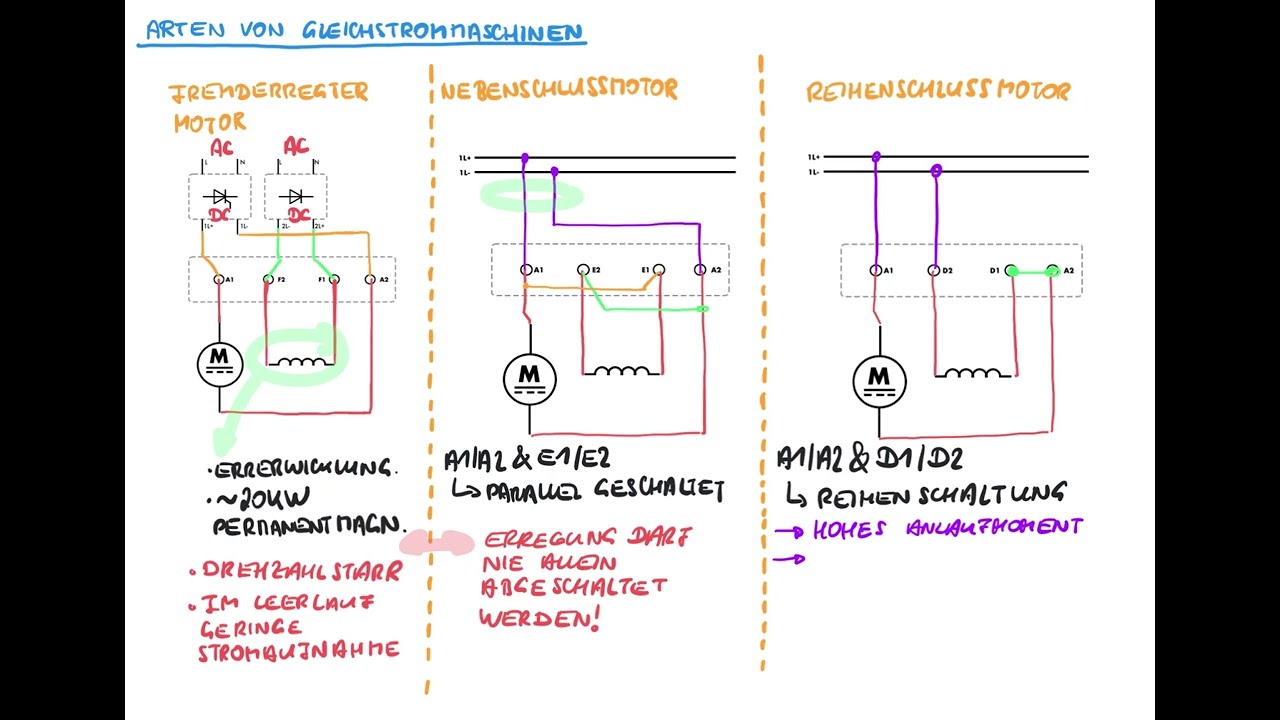 ARTEN VON GLEICHSTROMMASCHINEN
FREMDERREGTER
MOTOR
AC AC
L N L N
DC DC
1L+ 1L- 2L- 2L+
A1 F2 F1 A2
M
• ERRERWICKLUNG.
• ~20KW
PERMANENTMAGN.
• DREHZAHLSTARR
• IM LEERLAUF
GERINGE
STROMAUFNAHME
NEBENSCHLUSSMOTOR
1L+
1L-
A1 E2 E1 A2
M
A1/A2 & E1/E2
↳ PARALLEL GESCHALTET
ERREGUNG DARF
NIE ALLEIN
ABGESCHALTET
WERDEN!
REIHENSCHLUSSMOTOR
1L+
1L-
A1 D2 D1 A2
M
A1/A2 & D1/D2
↳ REIHENSCHALTUNG
→ HOHES ANLAUFMOMENT
→